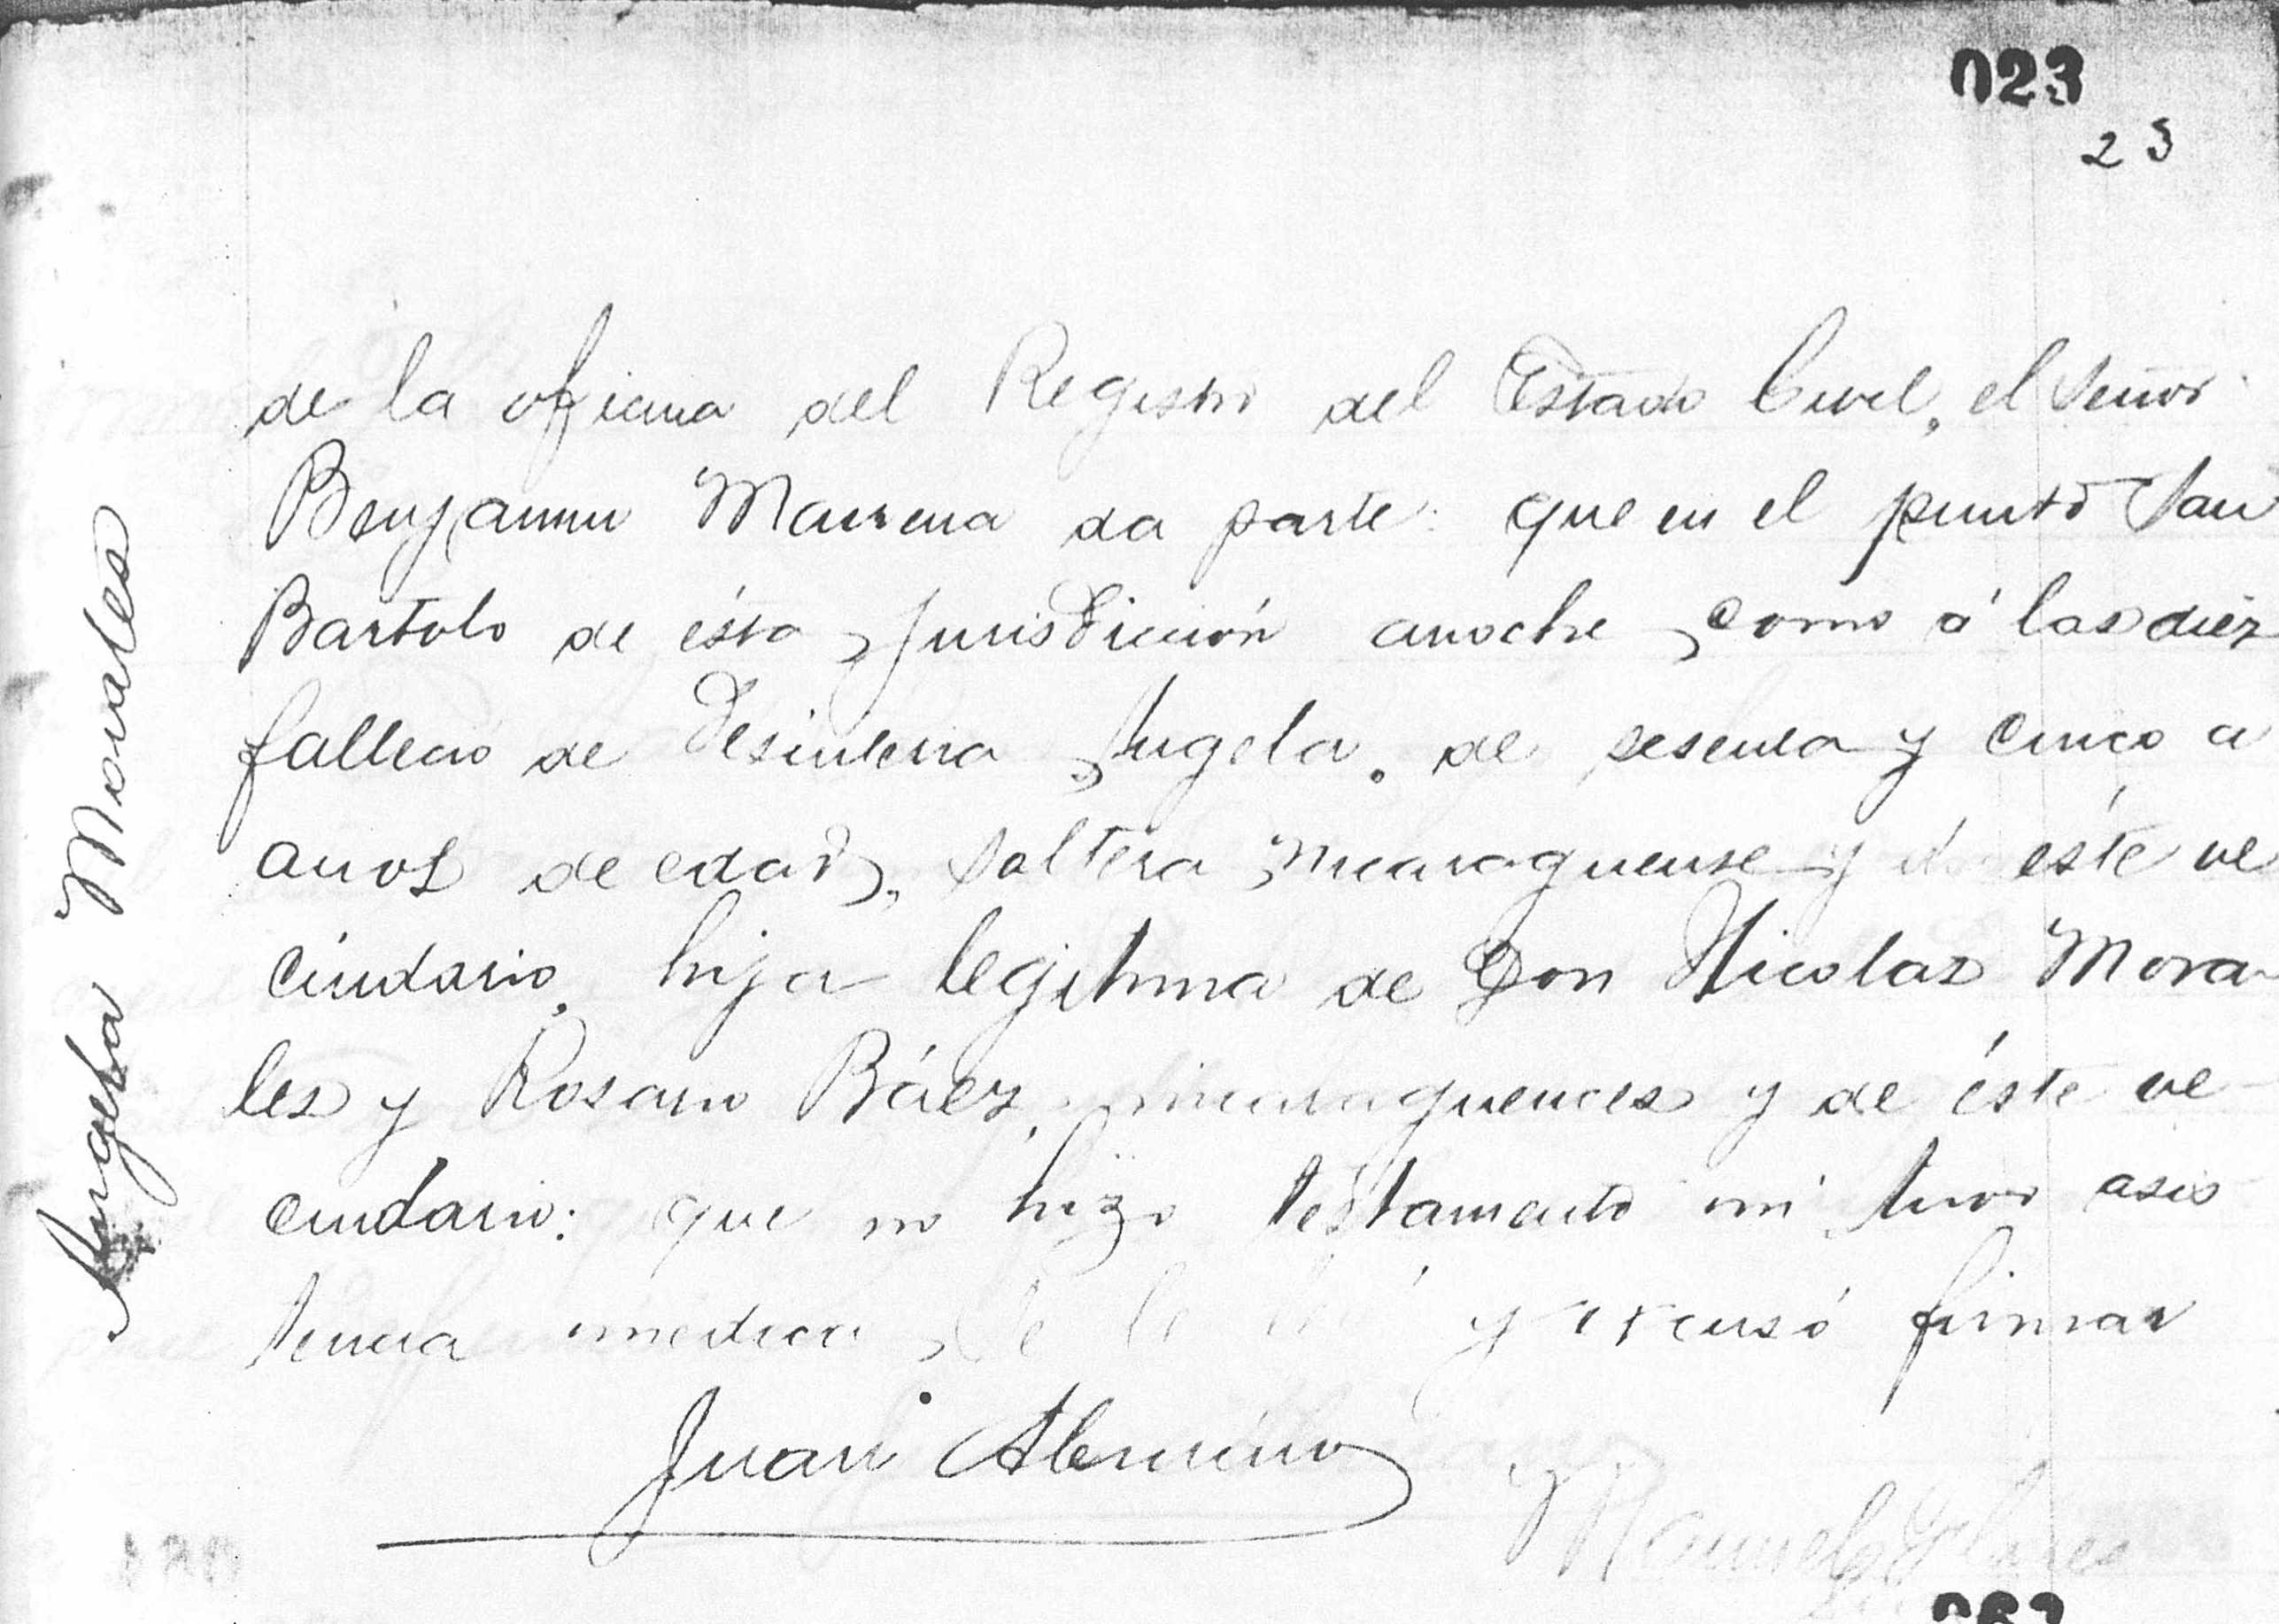 023
23
de la oficina del Registro del Estado Civil, el Señor
Benjamin Mairena da parte: que en el punto San
Bartolo de ésta Jurisdicción anoche como á las diez
falleció de Desinteria Angela. de sesenta y cinco a
años de edad, Soltera Nicaraguense y de éste ve
cindario, hija legitima de Don Nicolas Mora-
les y Rosario Báez, nicaraguences y de éste ve
cindario: que no hizo testamento ni tuvo asis
tencia medica Se le leyó y excusó firmar
Juan Alemán
Manuel
Angela Morales